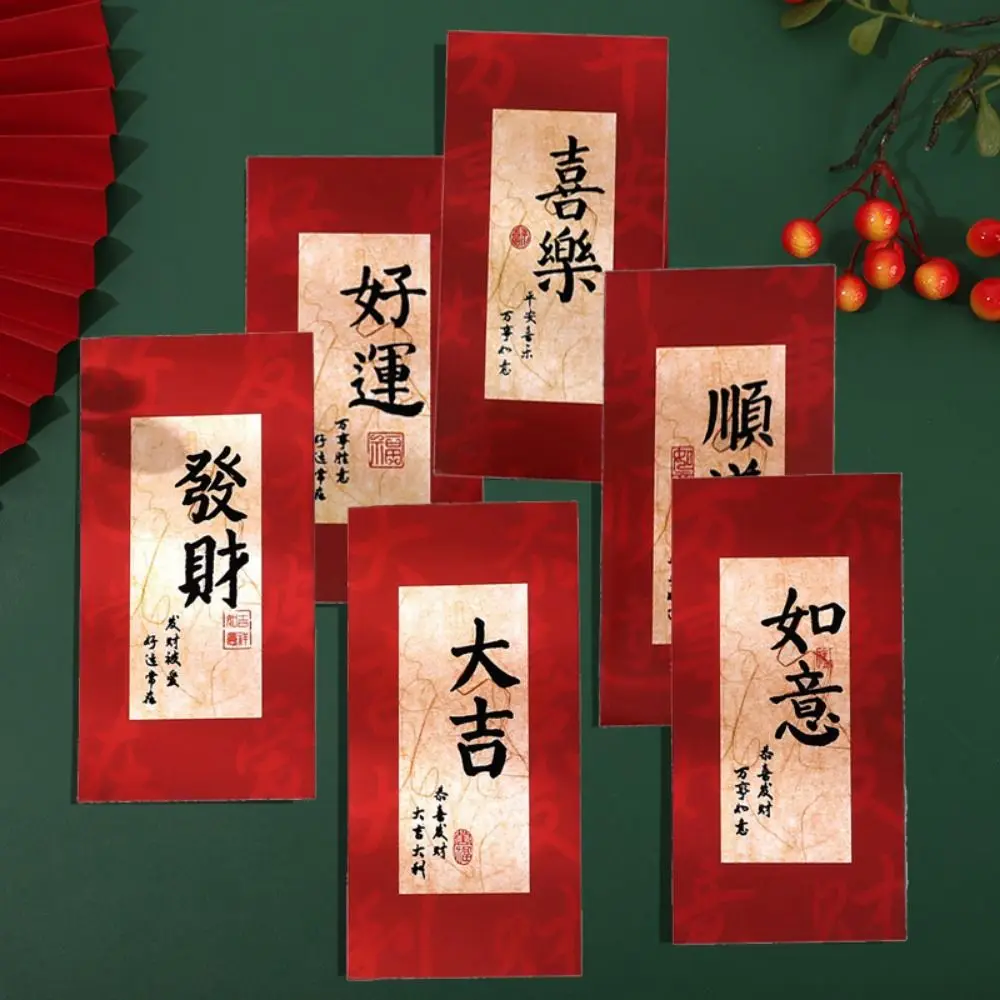 喜樂
平安喜乐
万事如意
好運
万事胜意
好运常在
順
發財
发财被爱
好运常在
吉祥
如意
大吉
恭喜发财
大吉大利
如意
恭喜发财
万事如意